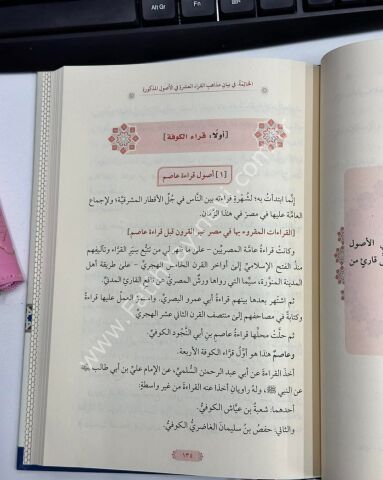 الخاتمة: في بيان مذاهب القراء العشرة في الأصول المذكورة
[أولًا: قراء الكوفة]
[١] أصول قراءة عاصم
إنَّما ابتدأتُ به؛ لشُهْرةِ قراءته بين النَّاس في جُلِّ الأقطار المشرقيَّة، ولإجماع
العامَّة عليها في مصرَ في هذا الزَّمان.
[القراءات المقروء بها في مصر عبر القرون قبل قراءة عاصم]
وكانتْ قراءةُ عامَّة المصريِّين - على ما ظهر لي من تتبُّع سِيَر القرَّاء وتآليفهم
منذُ الفتح الإسلاميِّ إلى أواخر القرن الخامس الهجريِّ - على طريقة أهل
المدينة المنوَّرة، سيَّما التي رواها ورشٌ المصريُّ عن نافع القارئ المدنيِّ.
ثم اشتهر بعدها بينهم قراءةُ أبي عمرو البصريِّ، واستمرَّ العملُ عليها قراءةً
وكتابةً في مصاحفهم إلى منتصف القرن الثاني عشر الهجريِّ
ثم حلَّتْ محلَّها قراءةُ عاصم بنِ أبي النَّجُود الكوفيِّ.
وعاصمٌ هذا هو أوَّل قرَّاء الكوفة الأربعة.
أخذَ القراءةَ عن أبي عبد الرحمن السُّلميِّ، عن الإمام عليِّ بن أبي طالب
عن النبي ﷺ، وله راويان أخذا عنه القراءةَ من غير واسطةٍ:
أحدهما: شعبةُ بن عيَّاش الكوفيُّ.
والثاني: حفصُ بنُ سليمانَ الغاضريُّ الكوفيُّ.
١٣٤
الأصول
قارئ من